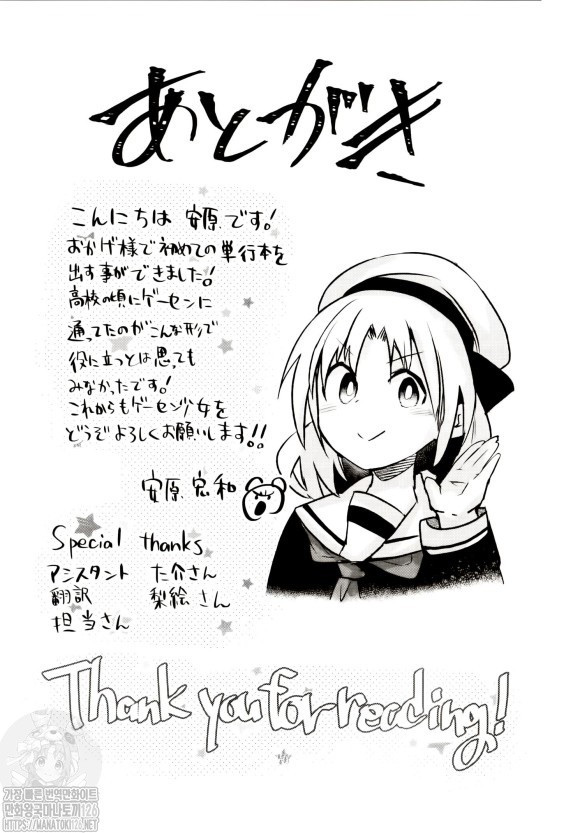 あとがき
こんにちは 安原です!
おかげ様で初めての単行本を
出す事ができました!
高校の頃にゲーセンに
通ってたのがこんな形で
役に立つとは思っても
みなかったです!
これからもゲーセン少女を
どうぞよろしくお願いします!!
安原 宏和
Special thanks
アシスタント た介さん
翻訳 梨絵さん
担当さん
Thank you for reading!
가장 빠른 번역만화사이트
만화왕국마나토끼126
HTTPS://MANATOKI126.NET